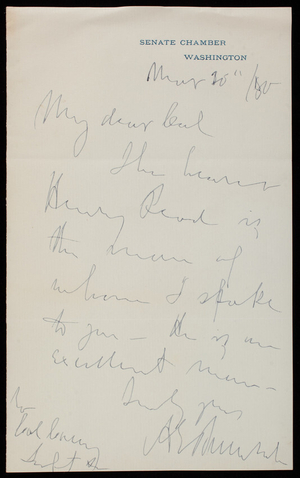 SENATE CHAMBER
WASHINGTON
May 20"/80
My dear Col
The bearer
Henry Read is
the man of
whom I spoke
to you – He is an
excellent man –
Truly yours
A E Burnside
to
Col Casey